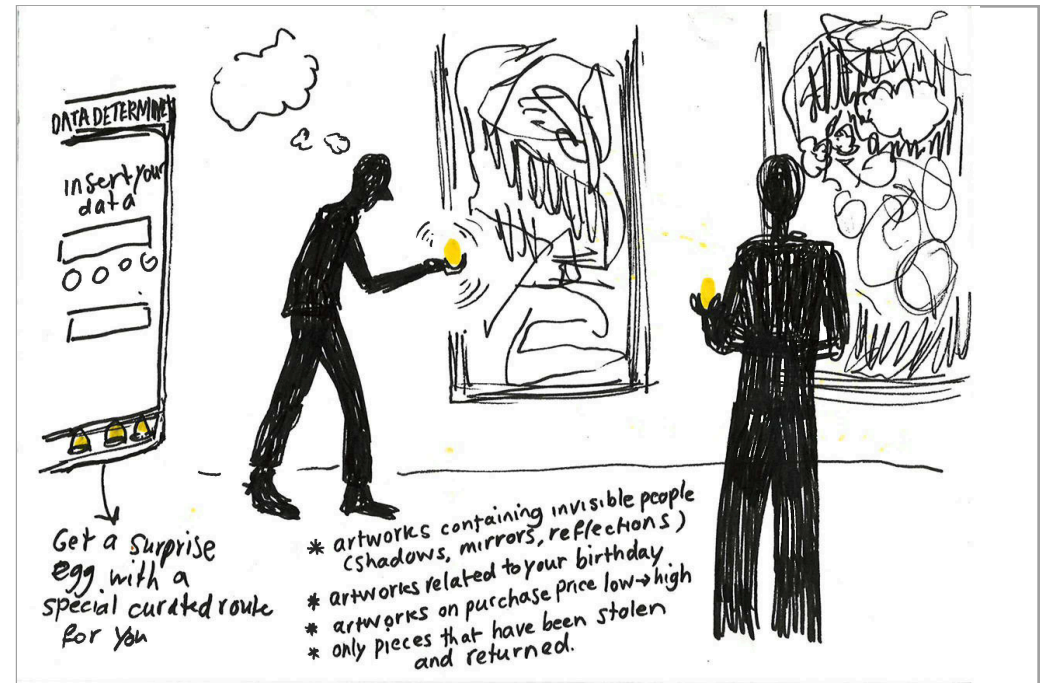 DATA DETERMINER
insert your
data
Get a surprise
egg with a
special curated route
for you
* artworks containing invisible people
(shadows, mirrors, reflections)
* artworks related to your birthday
* artworks on purchase price low→high
* only pieces that have been stolen
and returned.